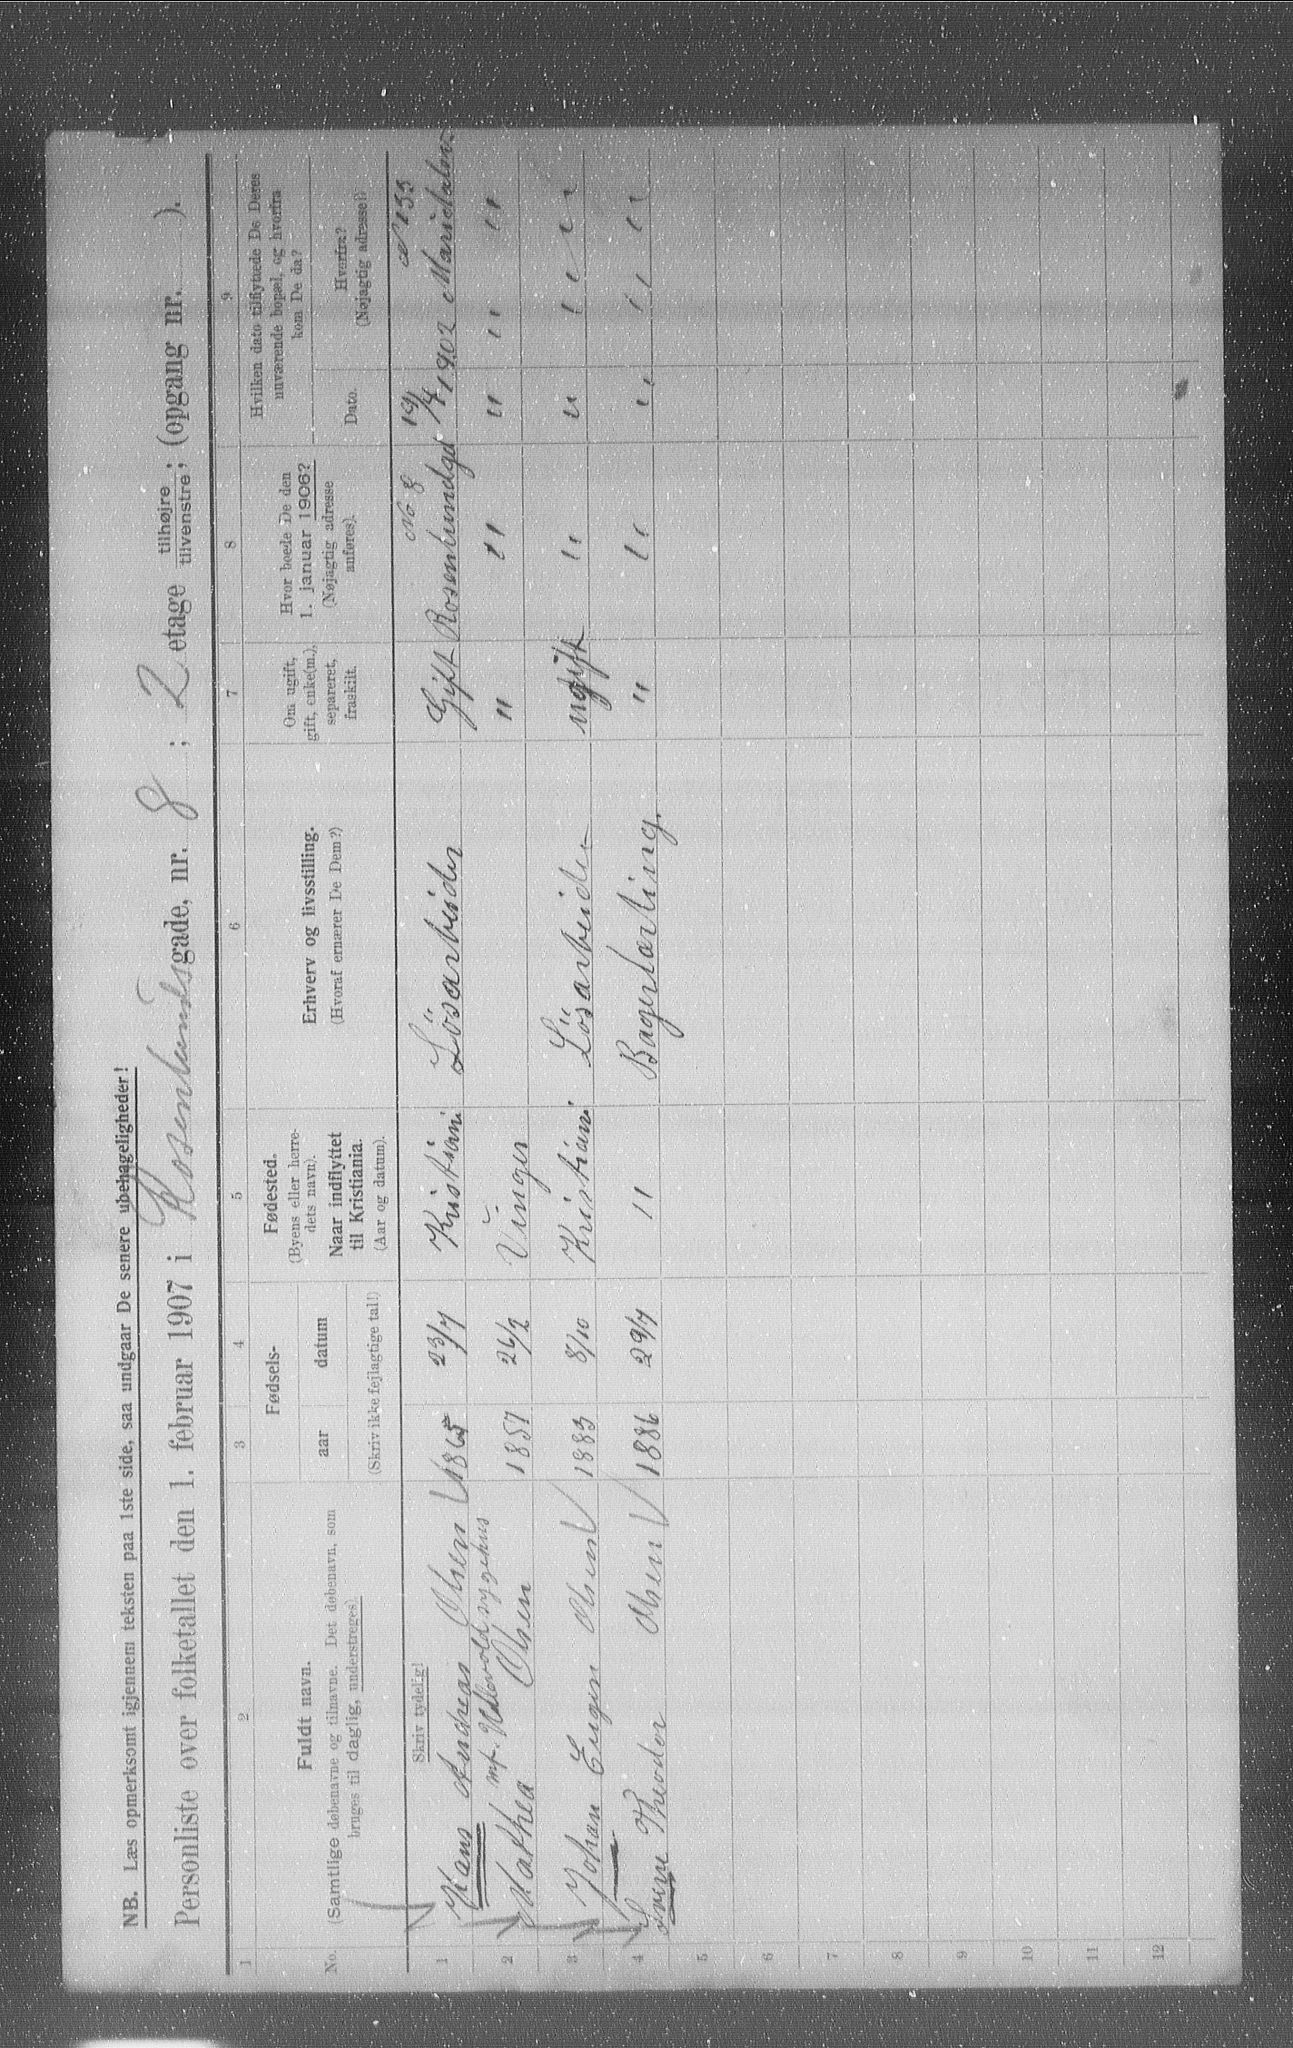 NB. Læs opmerksomt igjennem teksten paa 1ste side, saa undgaar De senere ubehageligheder!
Personliste over folketallet den 1. februar 1907 i Rosenlundsgade, nr. 8; 2 etage tilhøjre tilvenstre; (opgang nr. ).
1 2 3 4 5 6 7 8 9
No. Fuldt navn. (Samtlige døbenavne og tilnavne. Det døbenavn, som bruges til daglig, understreges). Skriv tydelig!
Fødsels- aar datum (Skriv ikke fejlagtige tal!)
Fødested. (Byens eller herredets navn). Naar indflyttet til Kristiania. (Aar og datum).
Erhverv og livsstilling. (Hvoraf ernærer De Dem?)
Om ugift, gift, enke(m.), separeret, fraskilt.
Hvor boede De den 1. januar 1906? (Nøjagtig adresse anføres).
Hvilken dato tilflyttede De Deres nuværende bopæl, og hvorfra kom De da?
Dato. Hvorfra? (Nøjagtig adresse))
1 Hans Andreas Olsen 1865 23/7 Kristiani Lösarbeider Gift Rosenlundgd No 8 19/4 1902 Maridalsv. No 155
mf. Ullevold sygehus
2 Mathea Olsen 1857 26/2 Vinger " " " " "
3 Johan Eugin Olsen 1883 8/10 Kristiani Lösarbeider ugift " " " "
4 Theodor Olsen 1886 29/7 " Bagerlærling. " " " " "
5
6
7
8
9
10
11
12